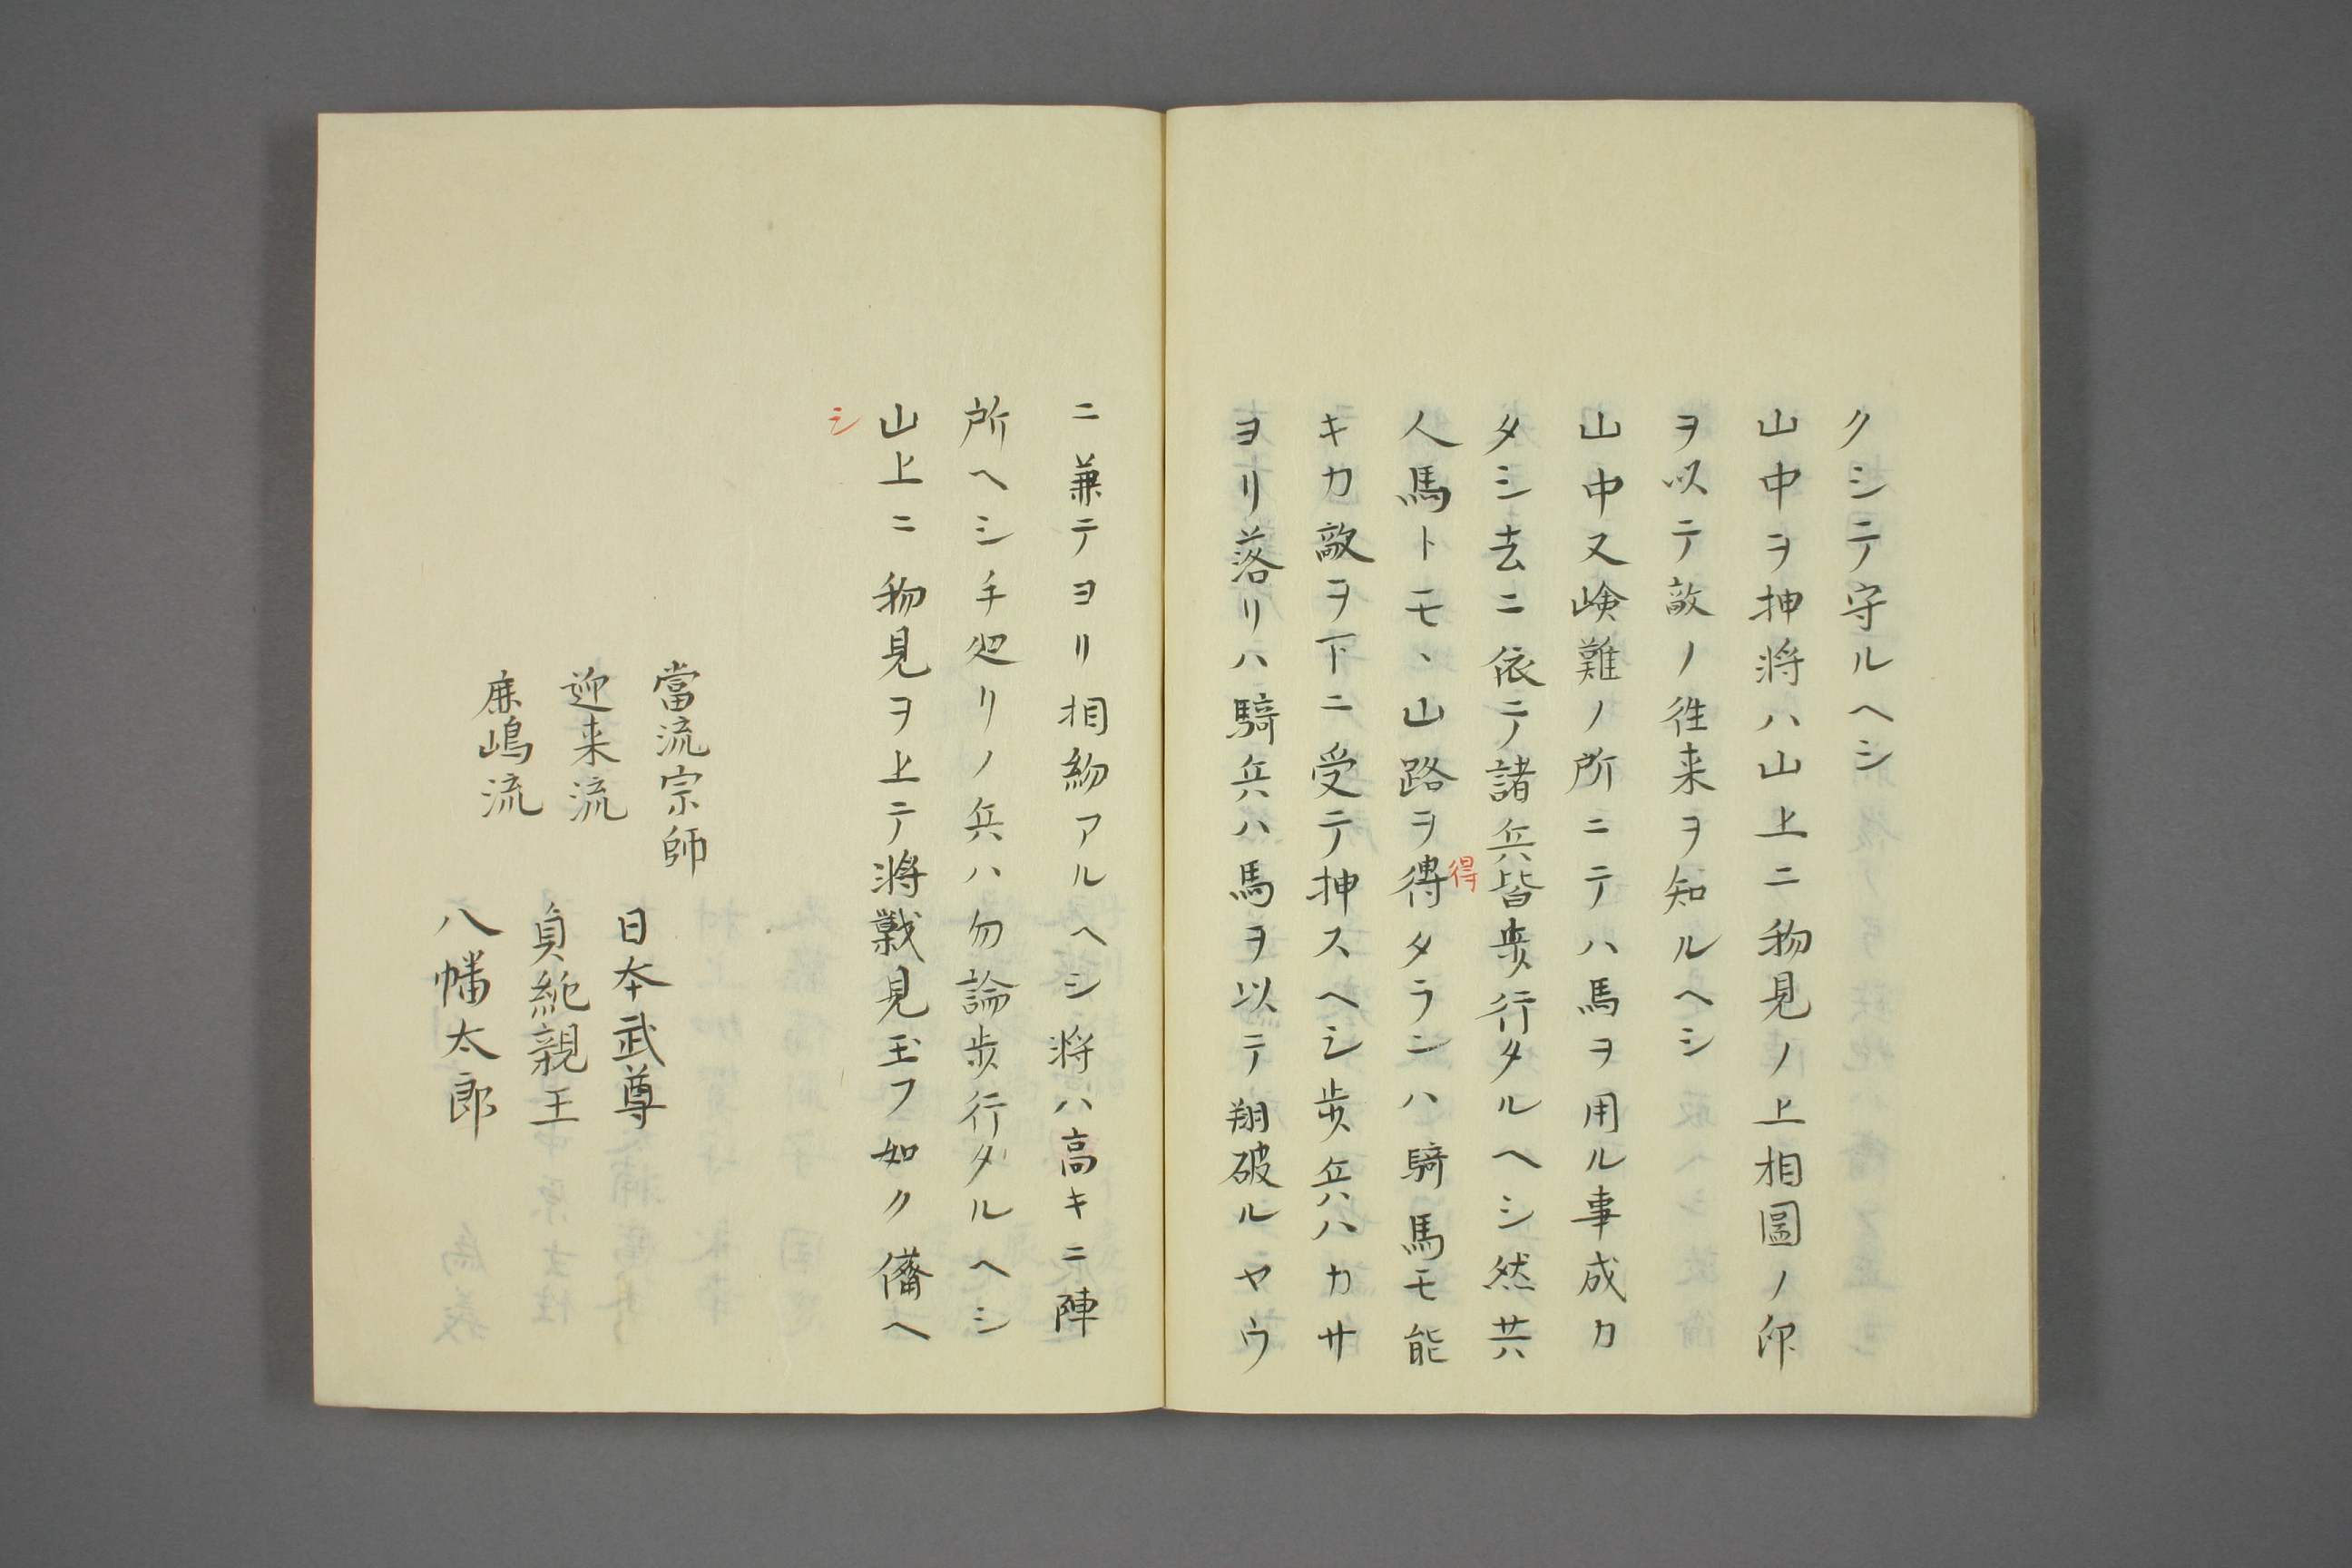 クシテ守ルヘシ
山中ヲ押将ハ山上ニ物見ノ上相圖ノ印
ヲ以テ敵ノ徃来ヲ知ルヘシ
山中又険難ノ所ニテハ馬ヲ用ル事成カ
タシ去ニ依テ諸兵皆歩行タルヘシ然共
人馬トモヽ山路ヲ傳タランハ騎馬モ能
得
キカ敵ヲ下ニ受テ押スヘシ歩兵ハカサ
ヨリ落リハ騎兵ハ馬ヲ以テ翔破ルヤウ
ニ兼テヨリ相紛アルヘシ将ハ高キニ陣
所ヘシ手廻リノ兵ハ勿論歩行タルヘシ
山上ニ物見ヲ上テ将戦見玉フ如ク備ヘ
シ
當流宗師 日本武尊
迎来流 貞純親王
鹿嶋流 八幡太郎